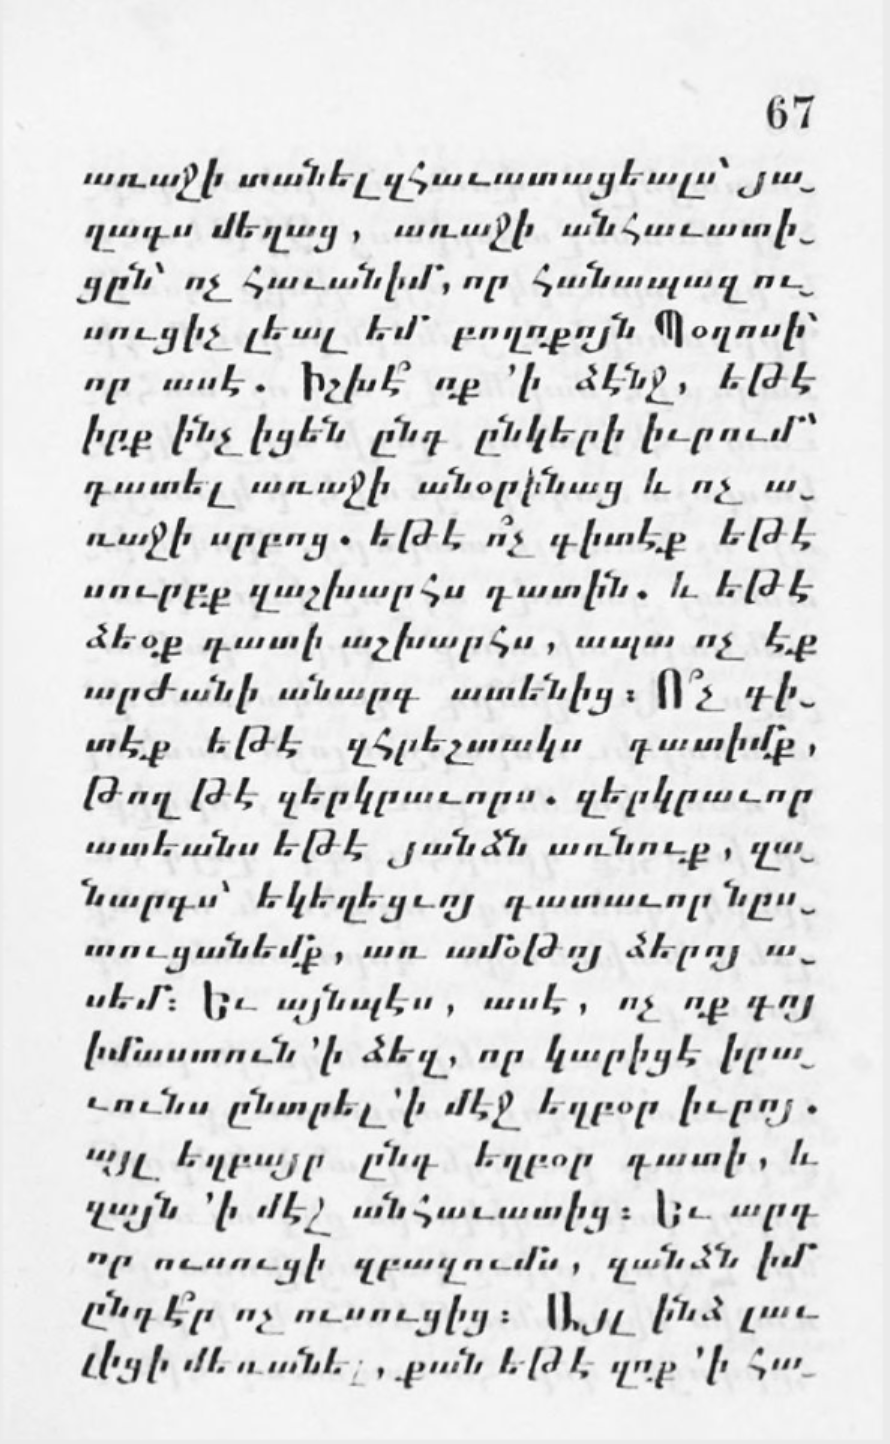 67
առաջի տանել զհաւատացեալս՝ յա֊
ղագս մեղաց, առաջի անհաւատի֊
ցըն՝ ոչ հաւանիմ, որ հանապազ ու֊
սուցիչ լեալ եմ բողոքոյն Պօղոսի՝
որ ասէ. Իշխե՞ ոք ՚ի ձէնջ, եթէ
իրք ինչ իցեն ընդ ընկերի իւրում՝
դատել առաջի անօրինաց և ոչ ա֊
ռաջի սրբոց. եթէ ո՞չ գիտէք եթէ
սուրբք զաշխարհս դատին. և եթէ
ձեօք դատի աշխարհս, ապա ոչ էք
արժանի անարգ ատենից։ Ո՞չ գի֊
տէք եթէ զհրեշտակս դատիմք,
թող թէ զերկրաւորս. զերկրաւոր
ատեանս եթէ յանձն առնուք, զա֊
նարգս՝ եկեղեցւոյ դատաւոր նըս֊
տուցանեմք, առ ամօթոյ ձերոյ ա֊
սեմ։ Եւ այնպէս, ասէ, ոչ ոք գոյ
իմաստուն ՚ի ձեզ, որ կարիցէ իրա֊
ւունս ընտրել ՚ի մէջ եղբօր իւրոյ.
այլ եղբայր ընդ եղբօր դատի, և
զայն ՚ի մէջ անհաւատից։ Եւ արդ
որ ուսուցի զբազումս, զանձն իմ
ընդէ՞ր ոչ ուսուցից։ Այլ ինձ լաւ
լիցի մեռանել, քան եթէ զոք ՚ի հա֊